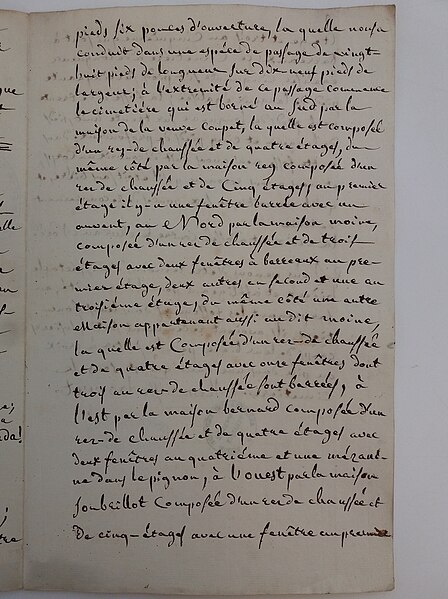 pieds six pouces d'ouverture, la quelle nous a
conduit dans une espéce de passage de vingt
huit pieds de longueur sur dix-neuf pieds de
largeur; à l'extremité de ce passage commence
le cimetière qui est borné au Sud par la
maison de la veuve Coupet, la quelle est composée
d'un rez-de chaussée et de quatre étages, du
même côté par la maison rey composée d'un
rez-de chaussée et de Cinq étages, au premier
étage il y a une fenêtre barrée avec un
auvent, au Nord par la maison moine,
composée d'un rez de chaussée et de trois
étages avec deux fenêtres à barreaux au pre-
mier étage, deux autres au second et une au
troisiéme étage, du même côté une autre
Maison appartenant aussi au dit moine,
la quelle est Composée d'un rez-de chaussée
et de quatre étages avec onze fenêtres dont
trois au rez-de chaussée sont barrées, à
l'est par la maison bernard composée d'un
rez-de chaussée et de quatre étages avec
deux fenêtres au quatriéme et une
dans le pignon, à l'ouest par la maison
Soubeillot Composée d'un rez de chaussée et
De cinq-étages avec une fenêtre au premier